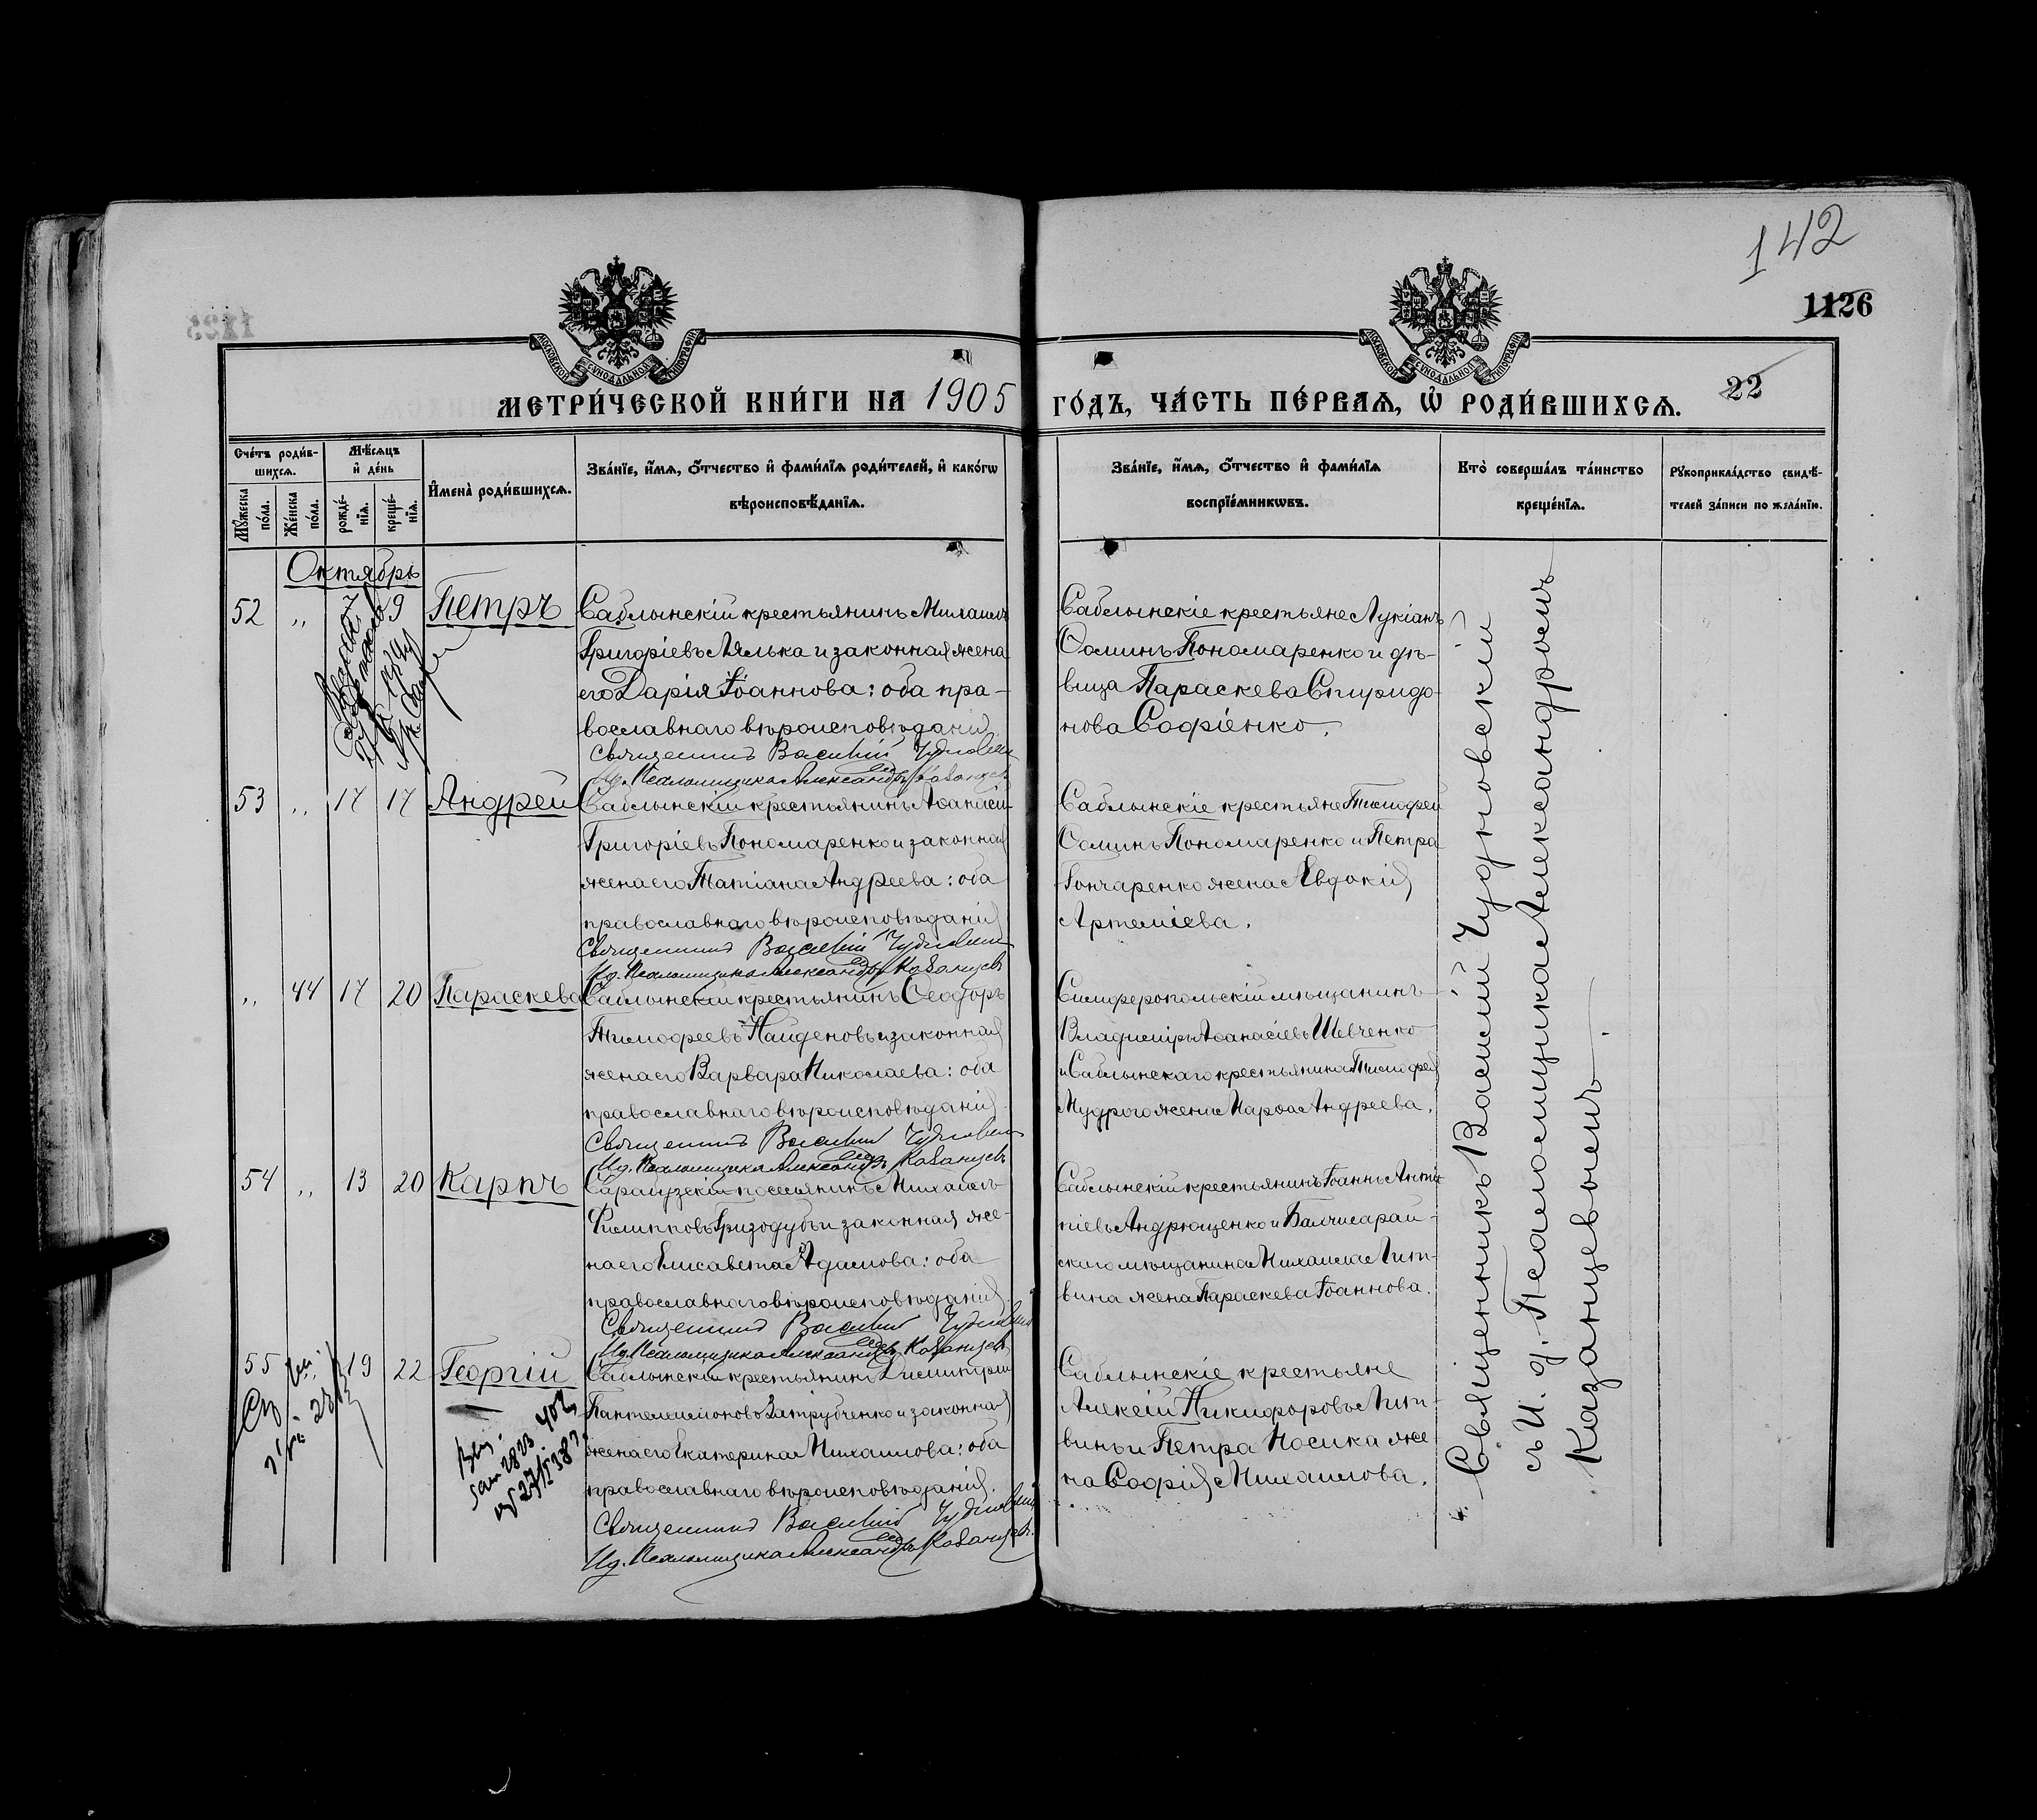 142
1126
МОСКОВСКОЙ СУНОДАЛЬНОЙ ТИПОГРАФІИ
МОСКОВСКОЙ СУНОДАЛЬНОЙ ТИПОГРАФІИ
МЕТРИ́ЧЕСКОЙ КНИ́ГИ НА 1905
ГО́ДЪ, ЧА́СТЬ ПЕ́РВАѦ, Ѡ҆ РОДИ́ВШИХСѦ.
22
Сче́тъ роди́в-
шихсѧ.
Мꙋ́жеска по́ла.
Же́нска по́ла.
Мѣ́сѧцъ
и҆ де́нь
рожде́-
нїѧ.
креще́-
нїѧ.
И҆мена̀ роди́вшихсѧ.
Зва́нїе, и҆́мѧ, ѻ҆́тчество и҆ фами́лїѧ роди́телей, и҆ како́гѡ
вѣроисповѣ́данїѧ.
Зва́нїе, и҆́мѧ, ѻ҆́тчество и҆ фами́лїѧ
воспрїе́мникѡвъ.
Кто̀ соверша́лъ та́инство
креще́нїѧ.
Рꙋкоприкла́дство свидѣ́-
телей за́писи по жела́нїю.
Октябрь
52 „ 7 9 Петръ
Саблынскій крестьянинъ Михаилъ
Григоріевъ Лялька и законная жена
его Дарія Іоаннова: оба пра-
вославнаго вѣроисповѣданія.
Священникъ Василій Чудновскій
И.д. Псаломщика Александръ Казанцевъ
Саблынскіе крестьяне Лукіанъ
Ѳоминъ Пономаренко и дѣ-
вица Параскева Спиридо-
нова Софіенко.
53 „ 17 17 Андрей
Саблынскій крестьянинъ Аѳанасій
Григоріевъ Пономаренко и законная
жена его Татіана Андреева: оба
православнаго вѣроисповѣданія
Священникъ Василій Чудновскій
И.д. Псаломщика Александръ Казанцевъ
Саблынскіе крестьяне Тимофей
Ѳоминъ Пономаренко и Петра
Гончаренко жена Евдокія
Артеміева.
„ 44 17 20 Параскева
Саблынскій крестьянинъ Ѳеодоръ
Тимофеевъ Найденовъ и законная
жена его Варвара Николаева: оба
православнаго вѣроисповѣданія.
Священникъ Василій Чудновскій
И.д. Псаломщика Александръ Казанцевъ
Симферопольскій мѣщанинъ
Владиміръ Аѳанасіевъ Шевченко
и Саблынскаго крестьянина Тимофея
Мудрого жена Марѳа Андреева.
54 „ 13 20 Карпъ
поселянинъ Михаилъ
Филипповъ Гризодубъ и законная же-
на его Елисавета Адамова: оба
православнаго вѣроисповѣданія
Священникъ Василій Чудновскій
И.д. Псаломщика Александръ Казанцевъ
Саблынскій крестьянинъ Іоаннъ Анти-
піевъ Андрющенко и Бахчисарай-
скаго мѣщанина Михаила Лит-
вина жена Параскева Іоаннова.
55 19 22 Георгій
Саблынскій крестьянинъ Димитрій
Пантелеимоновъ Затрубченко и законная
жена его Екатерина Михаилова: оба
православнаго вѣроисповѣданія.
Священникъ Василій Чудновскій
И.д. Псаломщика Александръ Казанцевъ.
Саблынскіе крестьяне
Алексій Никифоровъ Лит-
винъ и Петра Носика же-
на Софія Михаилова.
Священникъ Василій Чудновскій
съ И. д. Псаломщика Александромъ
Казанцевымъ.